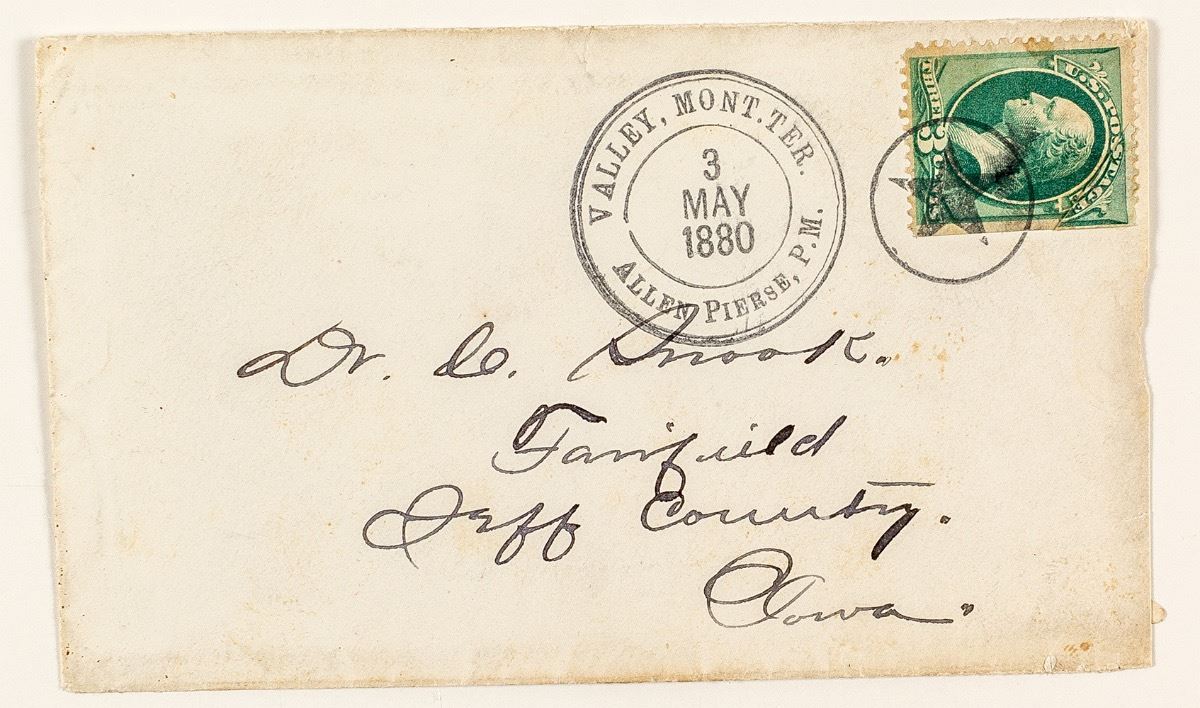 VALLEY, MONT. TER.
3
MAY
1880
ALLEN PIERSE, P.M.
U.S. POSTAGE
THREE 3 CENTS
Dr. C. Snook.
Fairfield
Jeff County.
Iowa.